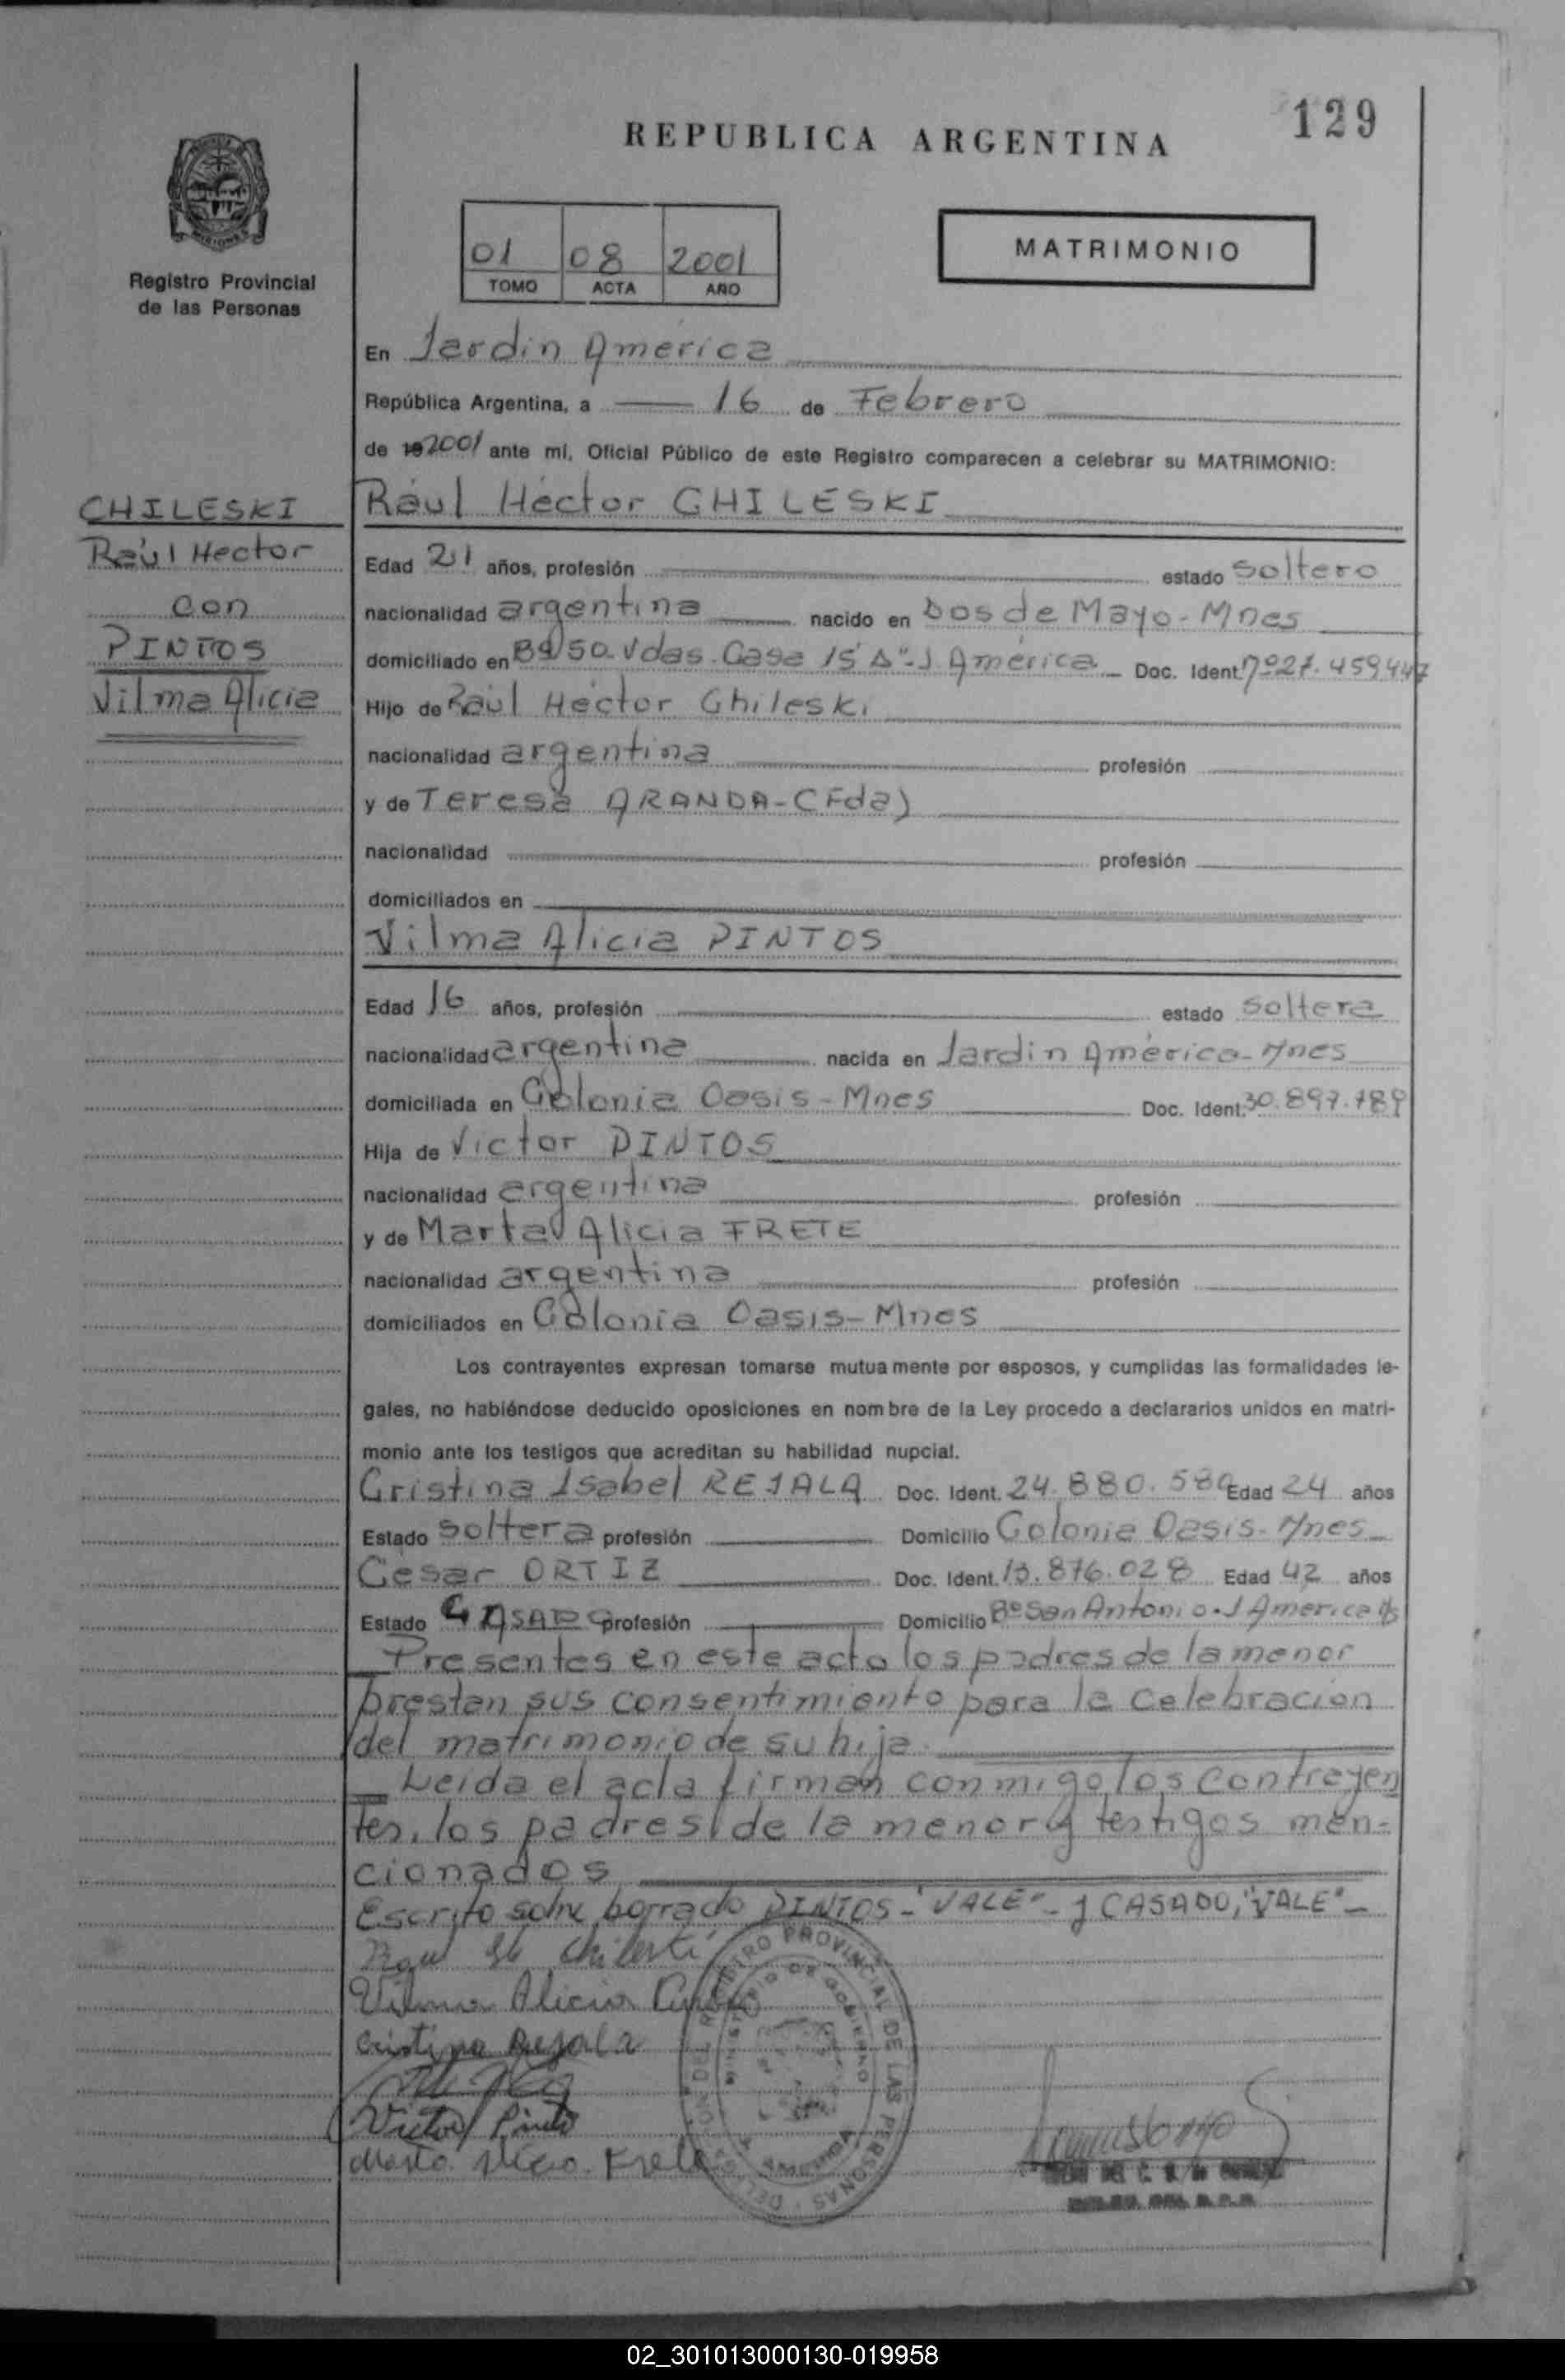 129
REPUBLICA ARGENTINA
MISIONES
Registro Provincial
de las Personas
01 08 2001
TOMO ACTA AÑO
MATRIMONIO
En Jardin America
República Argentina, a 16 de Febrero
de 19 2001 ante mí, Oficial Público de este Registro comparecen a celebrar su MATRIMONIO:
CHILESKI
Raúl Hector
con
PINTOS
Vilma Alicia
Raul Héctor CHILESKI
Edad 21 años, profesión estado soltero
nacionalidad argentina nacido en Dos de Mayo - Mnes
domiciliado en Bº 50 Vdas. Casa 15 J. América Doc. Ident. nº 27.459447
Hijo de Raúl Héctor Chileski
nacionalidad argentina profesión
y de Teresa ARANDA - (Fda)
nacionalidad profesión
domiciliados en
Vilma Alicia PINTOS
Edad 16 años, profesión estado soltera
nacionalidad argentina nacida en Jardin América - Mnes
domiciliada en Colonia Oasis - Mnes Doc. Ident. 30.897.789
Hija de Victor PINTOS
nacionalidad argentina profesión
y de Marta Alicia FRETE
nacionalidad argentina profesión
domiciliados en Colonia Oasis - Mnes
Los contrayentes expresan tomarse mutuamente por esposos, y cumplidas las formalidades le-
gales, no habiéndose deducido oposiciones en nombre de la Ley procedo a declararlos unidos en matri-
monio ante los testigos que acreditan su habilidad nupcial.
Cristina Isabel REJALA Doc. Ident. 24.880.580 Edad 24 años
Estado soltera profesión Domicilio Colonia Oasis - Mnes
Cesar ORTIZ Doc. Ident. 13.876.028 Edad 42 años
Estado CASADO profesión Domicilio Bº San Antonio - J America
Presentes en este acto los padres de la menor
prestan sus consentimiento para la celebración
del matrimonio de su hija.
Leida el acta firman conmigo los contrayen
tes, los padres de la menor y testigos men-
cionados
Escrito sobre borrado PINTOS - "VALE" - y CASADO, "VALE" -
Vilma Alicia Pintos
Cristina Rejala
Victor Pinto
Marta Alicia Frete
REGISTRO PROVINCIAL DE LAS PERSONAS
MINISTERIO DE GOBIERNO
02_301013000130-019958